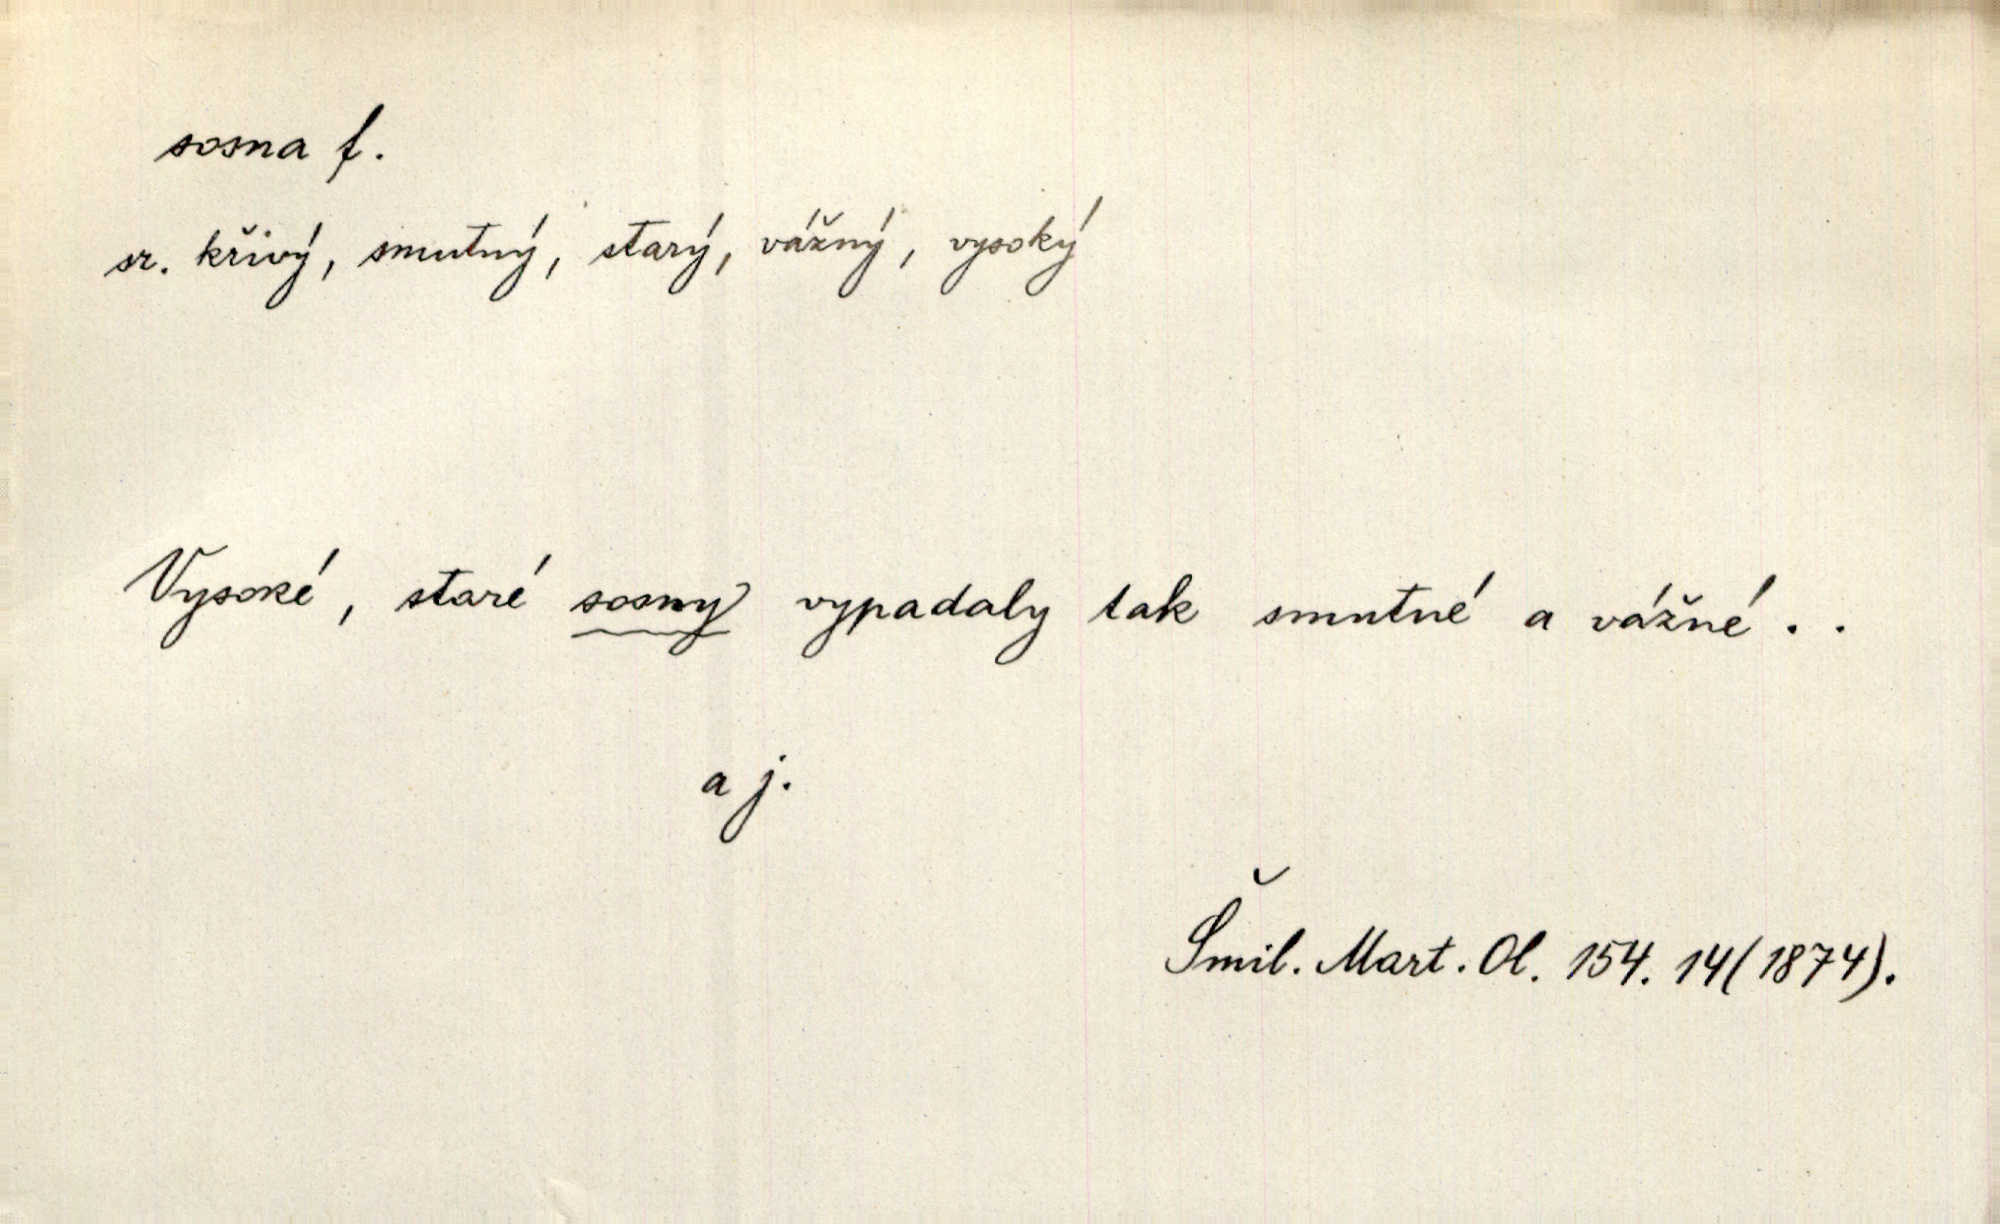 sosna f.
sr. křivý, smutný, starý, vážný, vysoký
Vysoké, staré sosny vypadaly tak smutné a vážné . .
a j.
Šmil. Mart. Ol. 154. 14 (1874).